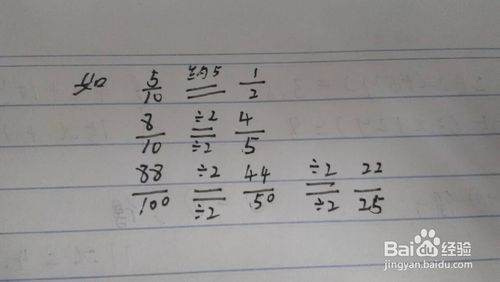 如 5/10 = 约5 1/2
8/10 ÷2 = ÷2 4/5
88/100 ÷2 = ÷2 44/50 ÷2 = ÷2 22/25
Baidu 经验
jingyan.baidu.com